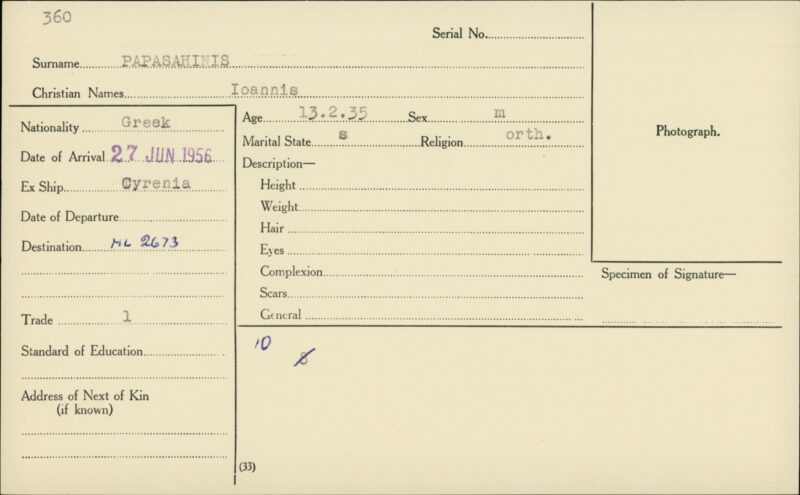 360
Serial No.
Surname PAPASAHINIS
Christian Names Ioannis
Nationality Greek
Date of Arrival 27 JUN 1956
Ex Ship Cyrenia
Date of Departure
Destination ML 2673
Trade 1
Standard of Education
Address of Next of Kin
(if known)
Age 13.2.35 Sex m
Marital State s Religion orth.
Description—
Height
Weight
Hair
Eyes
Complexion
Scars
General
10
8
(33)
Photograph.
Specimen of Signature—